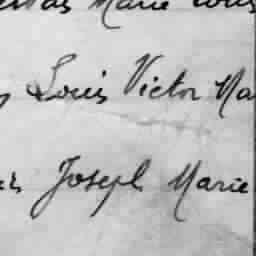 Marie
Louis Victor Ma
Joseph Marie